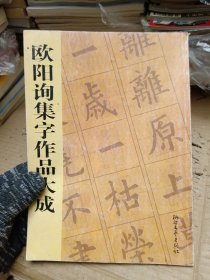 欧阳询集字作品大成
離離原上
歲一枯榮
燒不